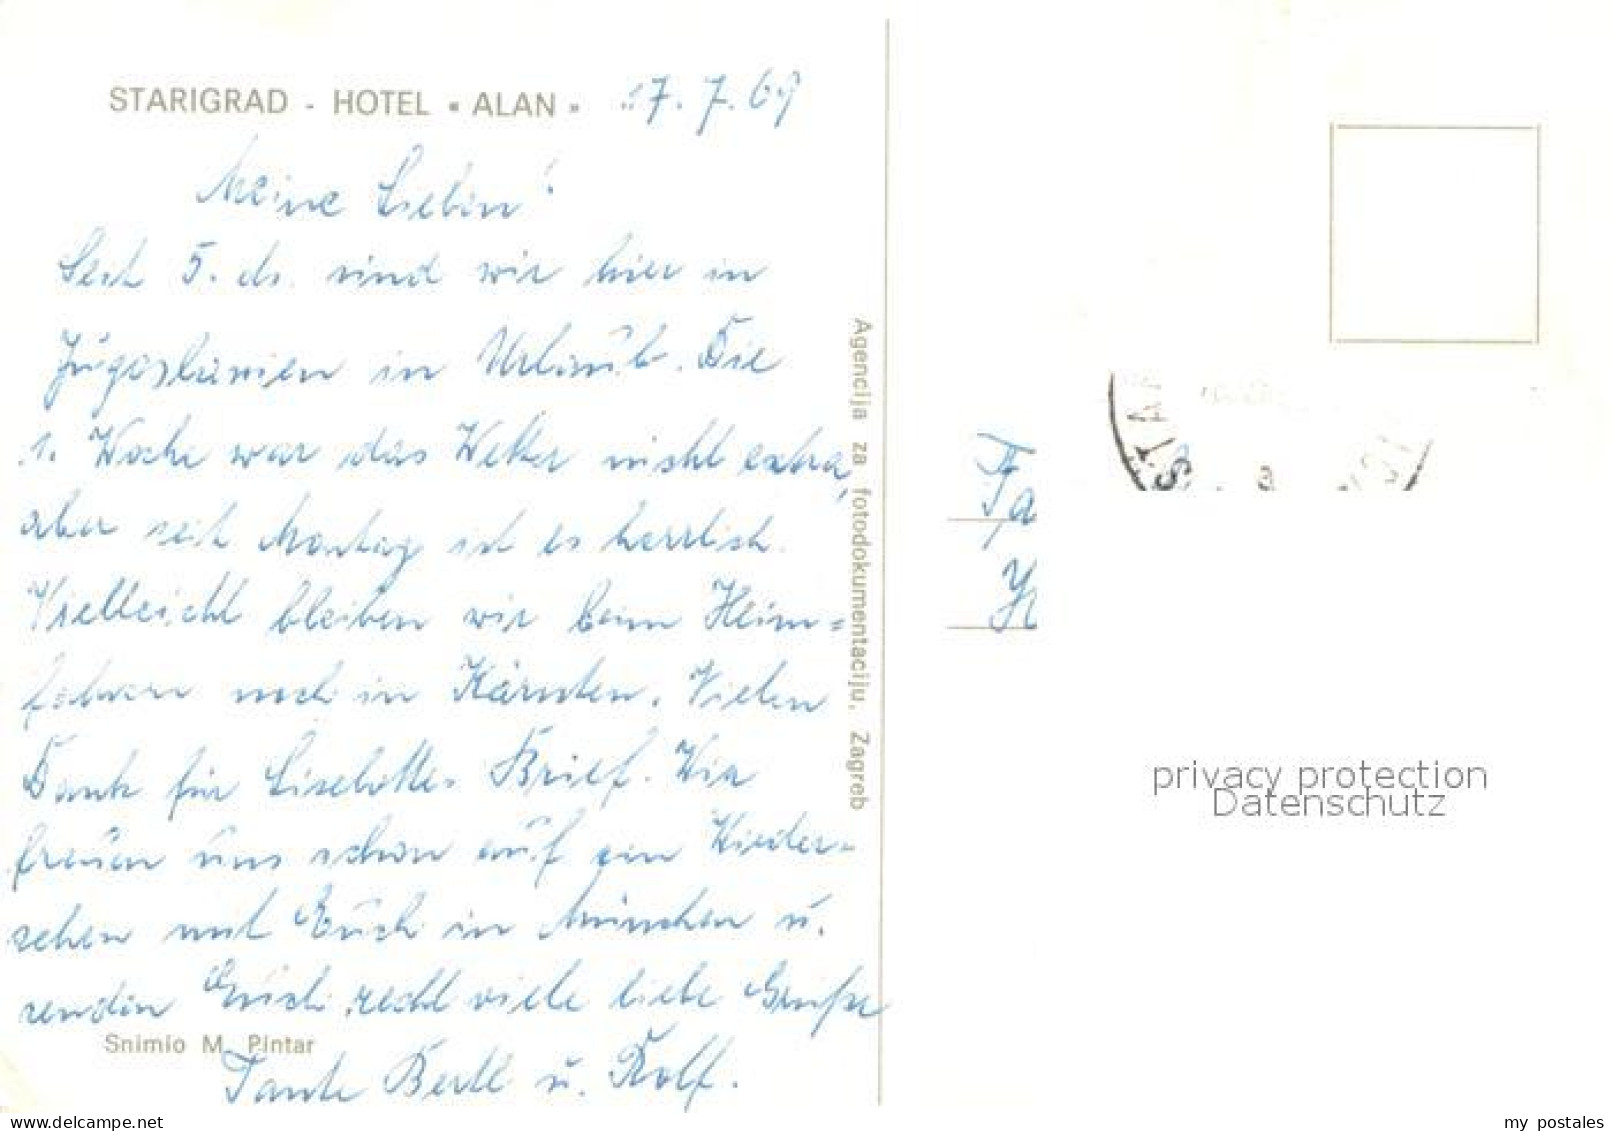 STARIGRAD - HOTEL « ALAN » 17. 7. 69
Meine Lieben!
Seit 5. ds. sind wir hier in
Jugoslawien in Urlaub. Die
1. Woche war das Wetter nicht extra,
aber seit Montag ist es herrlich.
Vielleicht bleiben wir beim Heim=
fahren noch in Kärnten. Vielen
Dank für Liselottes Brief. Wir
freuen uns schon auf ein Wieder-
sehen mit Euch in München u.
senden Euch recht viele liebe Grüße
Snimio M. Pintar
Tante Bertl u. Rolf.
Agencija za fotodokumentaciju, Zagreb
Fa
privacy protection
Datenschutz
delcampe.net
my_postales